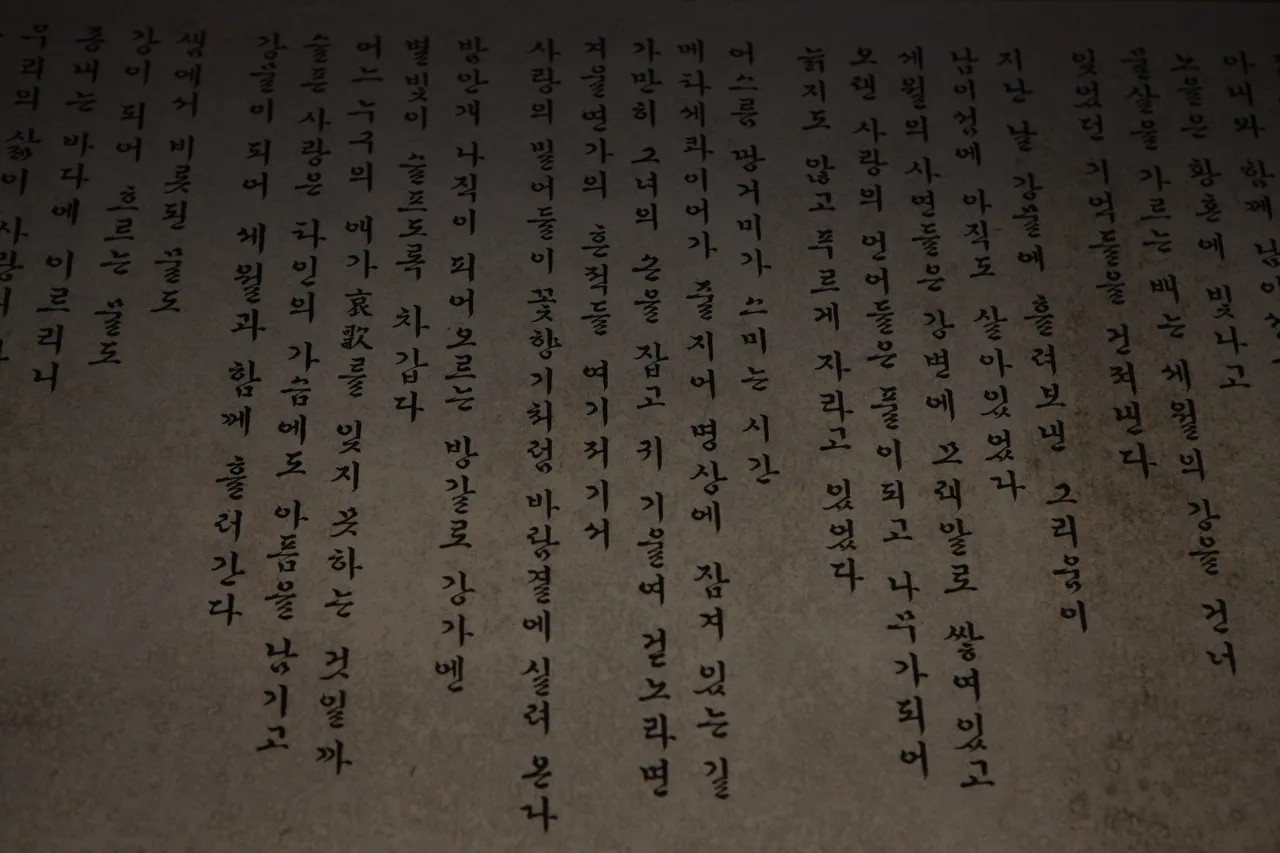 아내와 함께 남이섬
노을은 황혼에 빛나고
물살을 가르는 배는 세월의 강을 건너
잊었던 기억들을 건져낸다
지난 날 강물에 흘려보낸 그리움이
남이섬에 아직도 살아있었다
세월의 사연들은 강변에 모래알로 쌓여있고
오랜 사랑의 언어들은 풀이되고 나무가되어
늙지도 않고 푸르게 자라고 있었다
어스름 땅거미가 스미는 시간
메타세콰이어가 줄지어 명상에 잠겨 있는 길
가만히 그녀의 손을 잡고 귀 기울여 걷노라면
겨울연가의 흔적들 여기저기서
사랑의 밀어들이 꽃향기처럼 바람결에 실려 온다
밤안개 나직이 피어오르는 방갈로 강가엔
별빛이 슬프도록 차갑다
어느 누구의 애가哀歌를 잊지 못하는 것일까
슬픈 사랑은 타인의 가슴에도 아픔을 남기고
강물이 되어 세월과 함께 흘러간다
샘에서 비롯된 물도
강이 되어 흐르는 물도
종내는 바다에 이르리니
우리의 삶이 사랑의